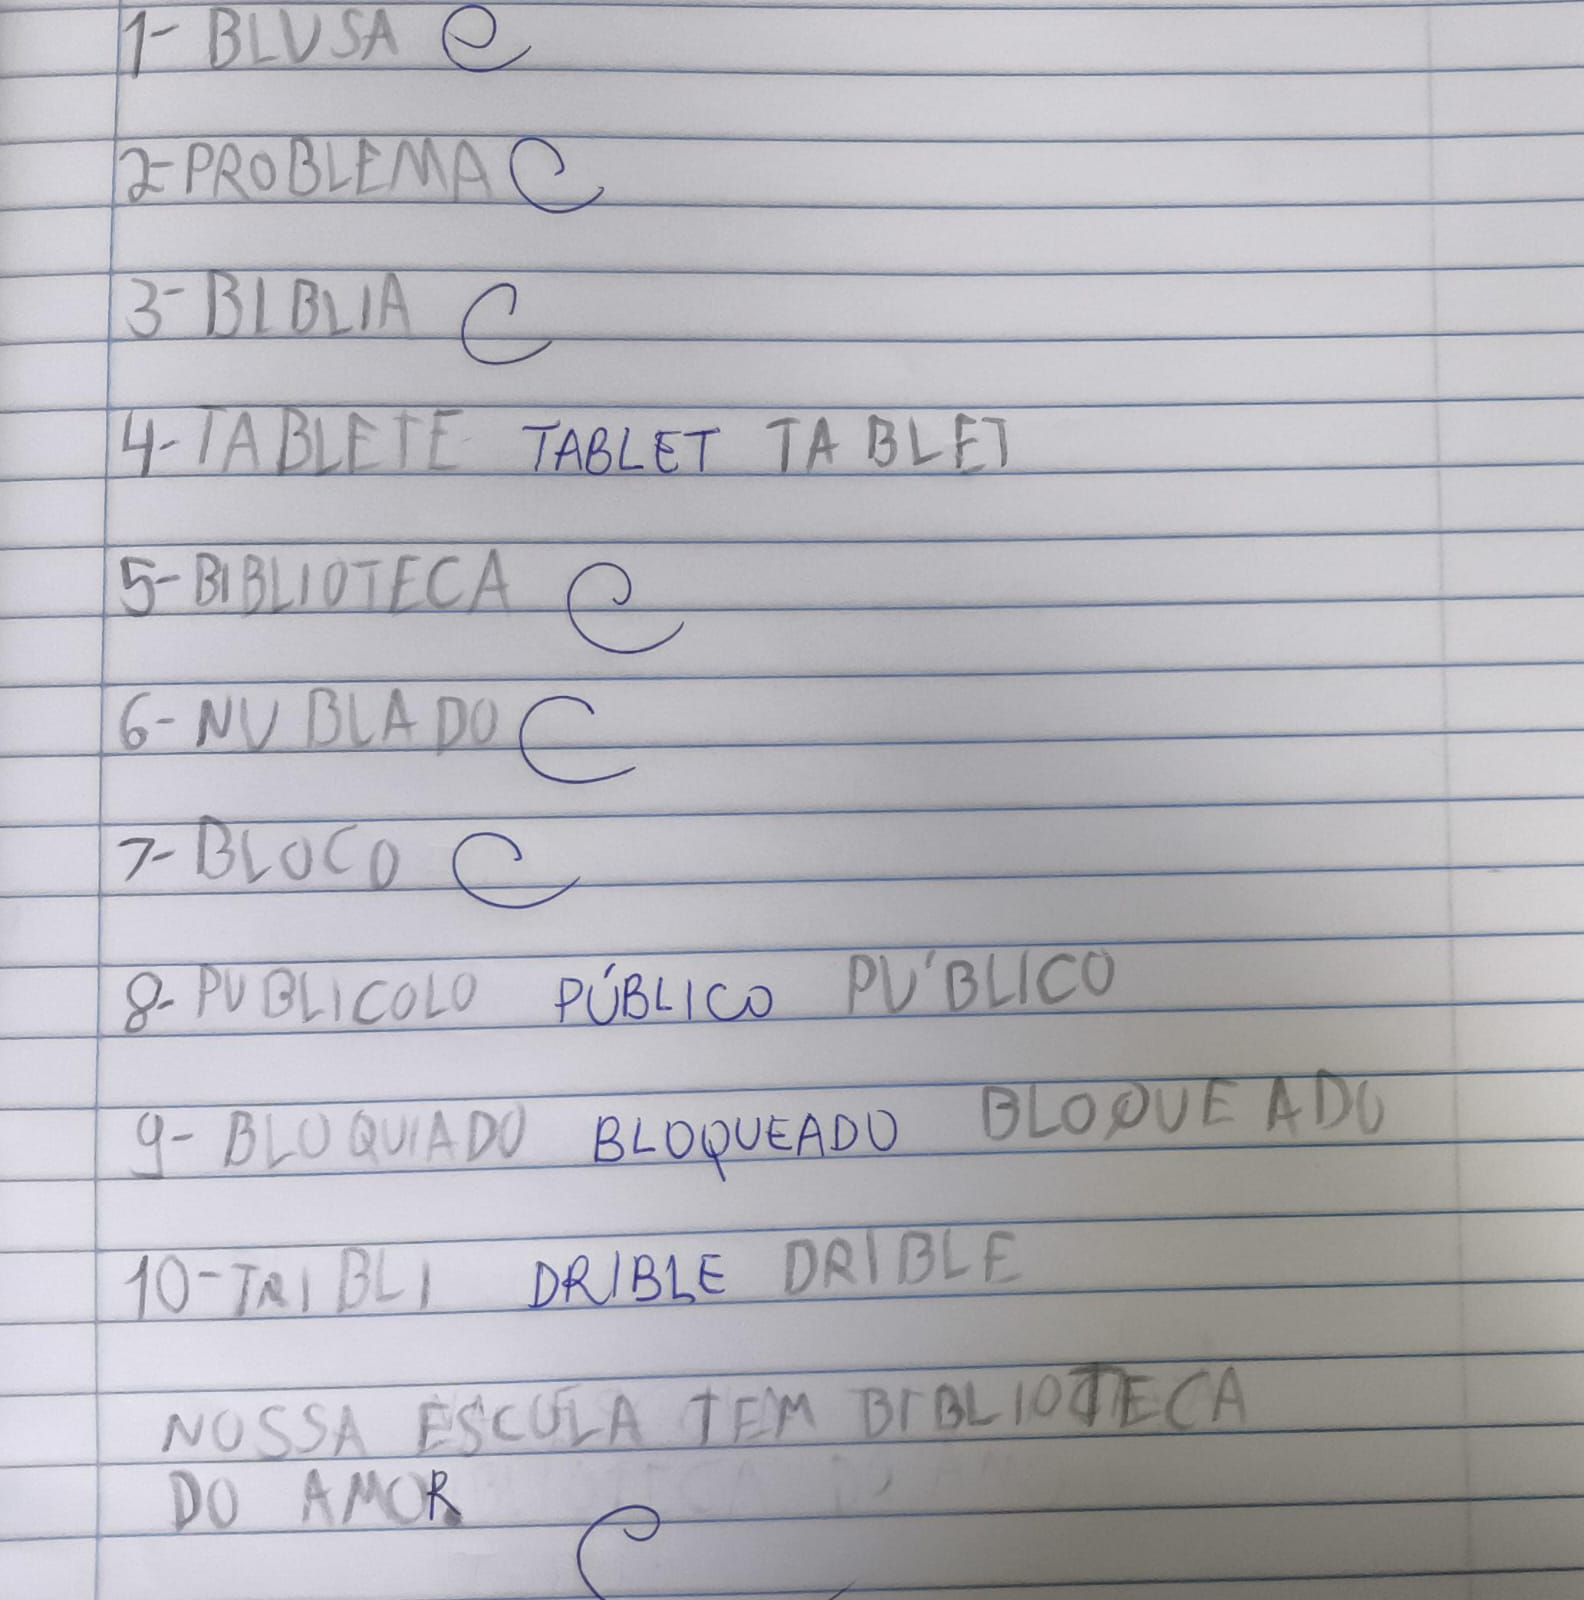 1- BLUSA C
2- PROBLEMA C
3- BIBLIA C
4- TABLETE TABLET TABLET
5- BIBLIOTECA C
6- NUBLADO C
7- BLOCO C
8- PUBLICOLO PÚBLICO PÚBLICO
9- BLOQUIADO BLOQUEADO BLOQUEADO
10- TRIBLI DRIBLE DRIBLE
NOSSA ESCOLA TEM BIBLIOTECA
DO AMOR
C